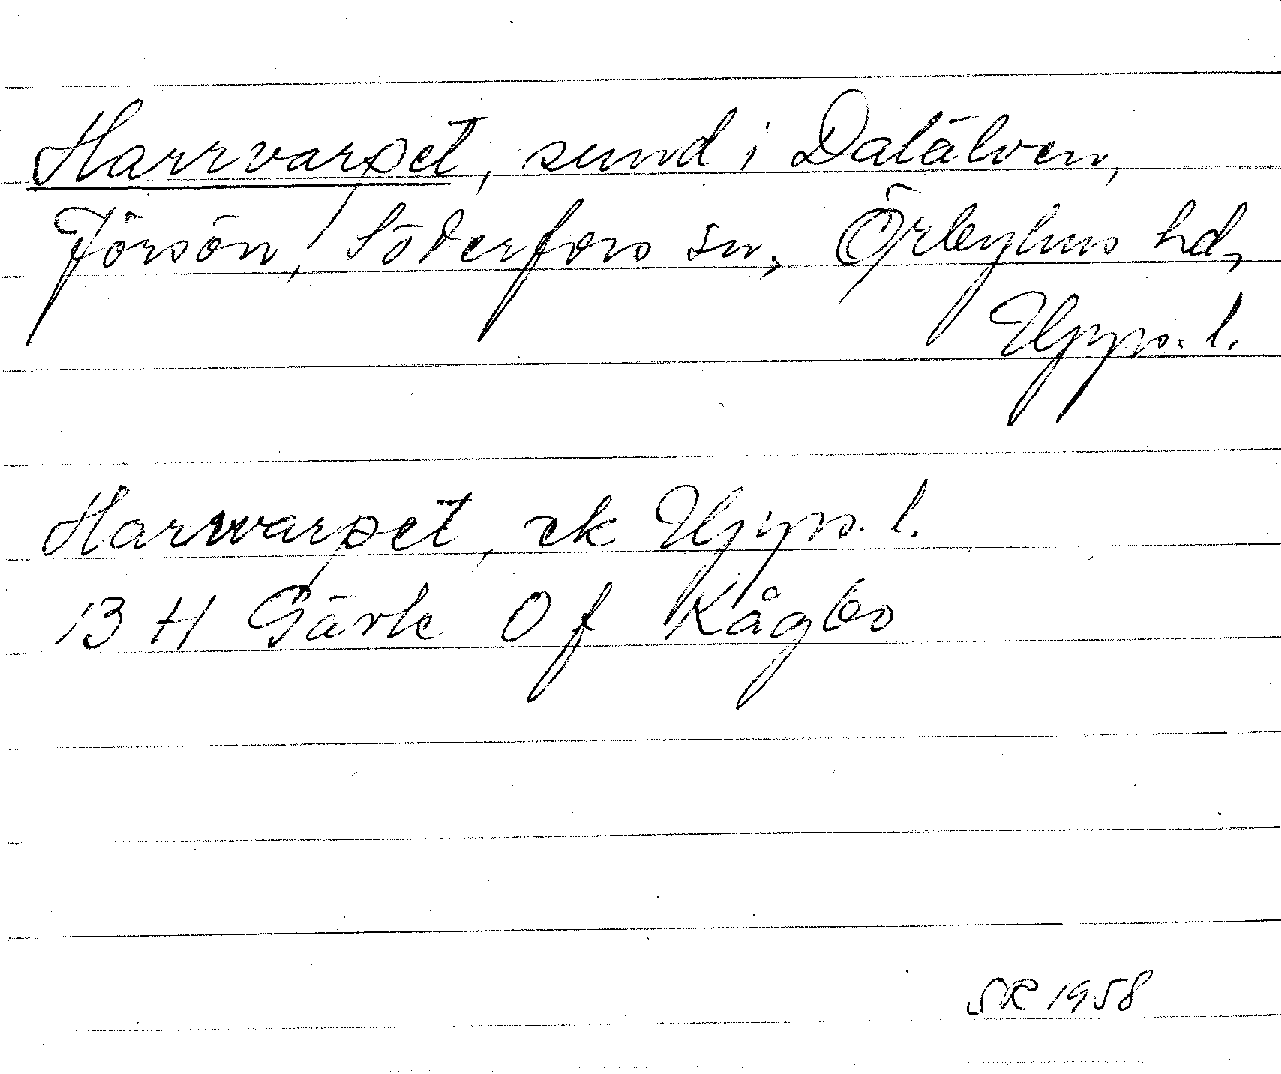 Harrvarpet, sund i Dalälven,
Jörsön, Söderfors sn, Örbyhus hd,
Upps. l.
Harvarpet, ek Upps. l.
13 H Gävle 0 f Kågbo
SR 1958